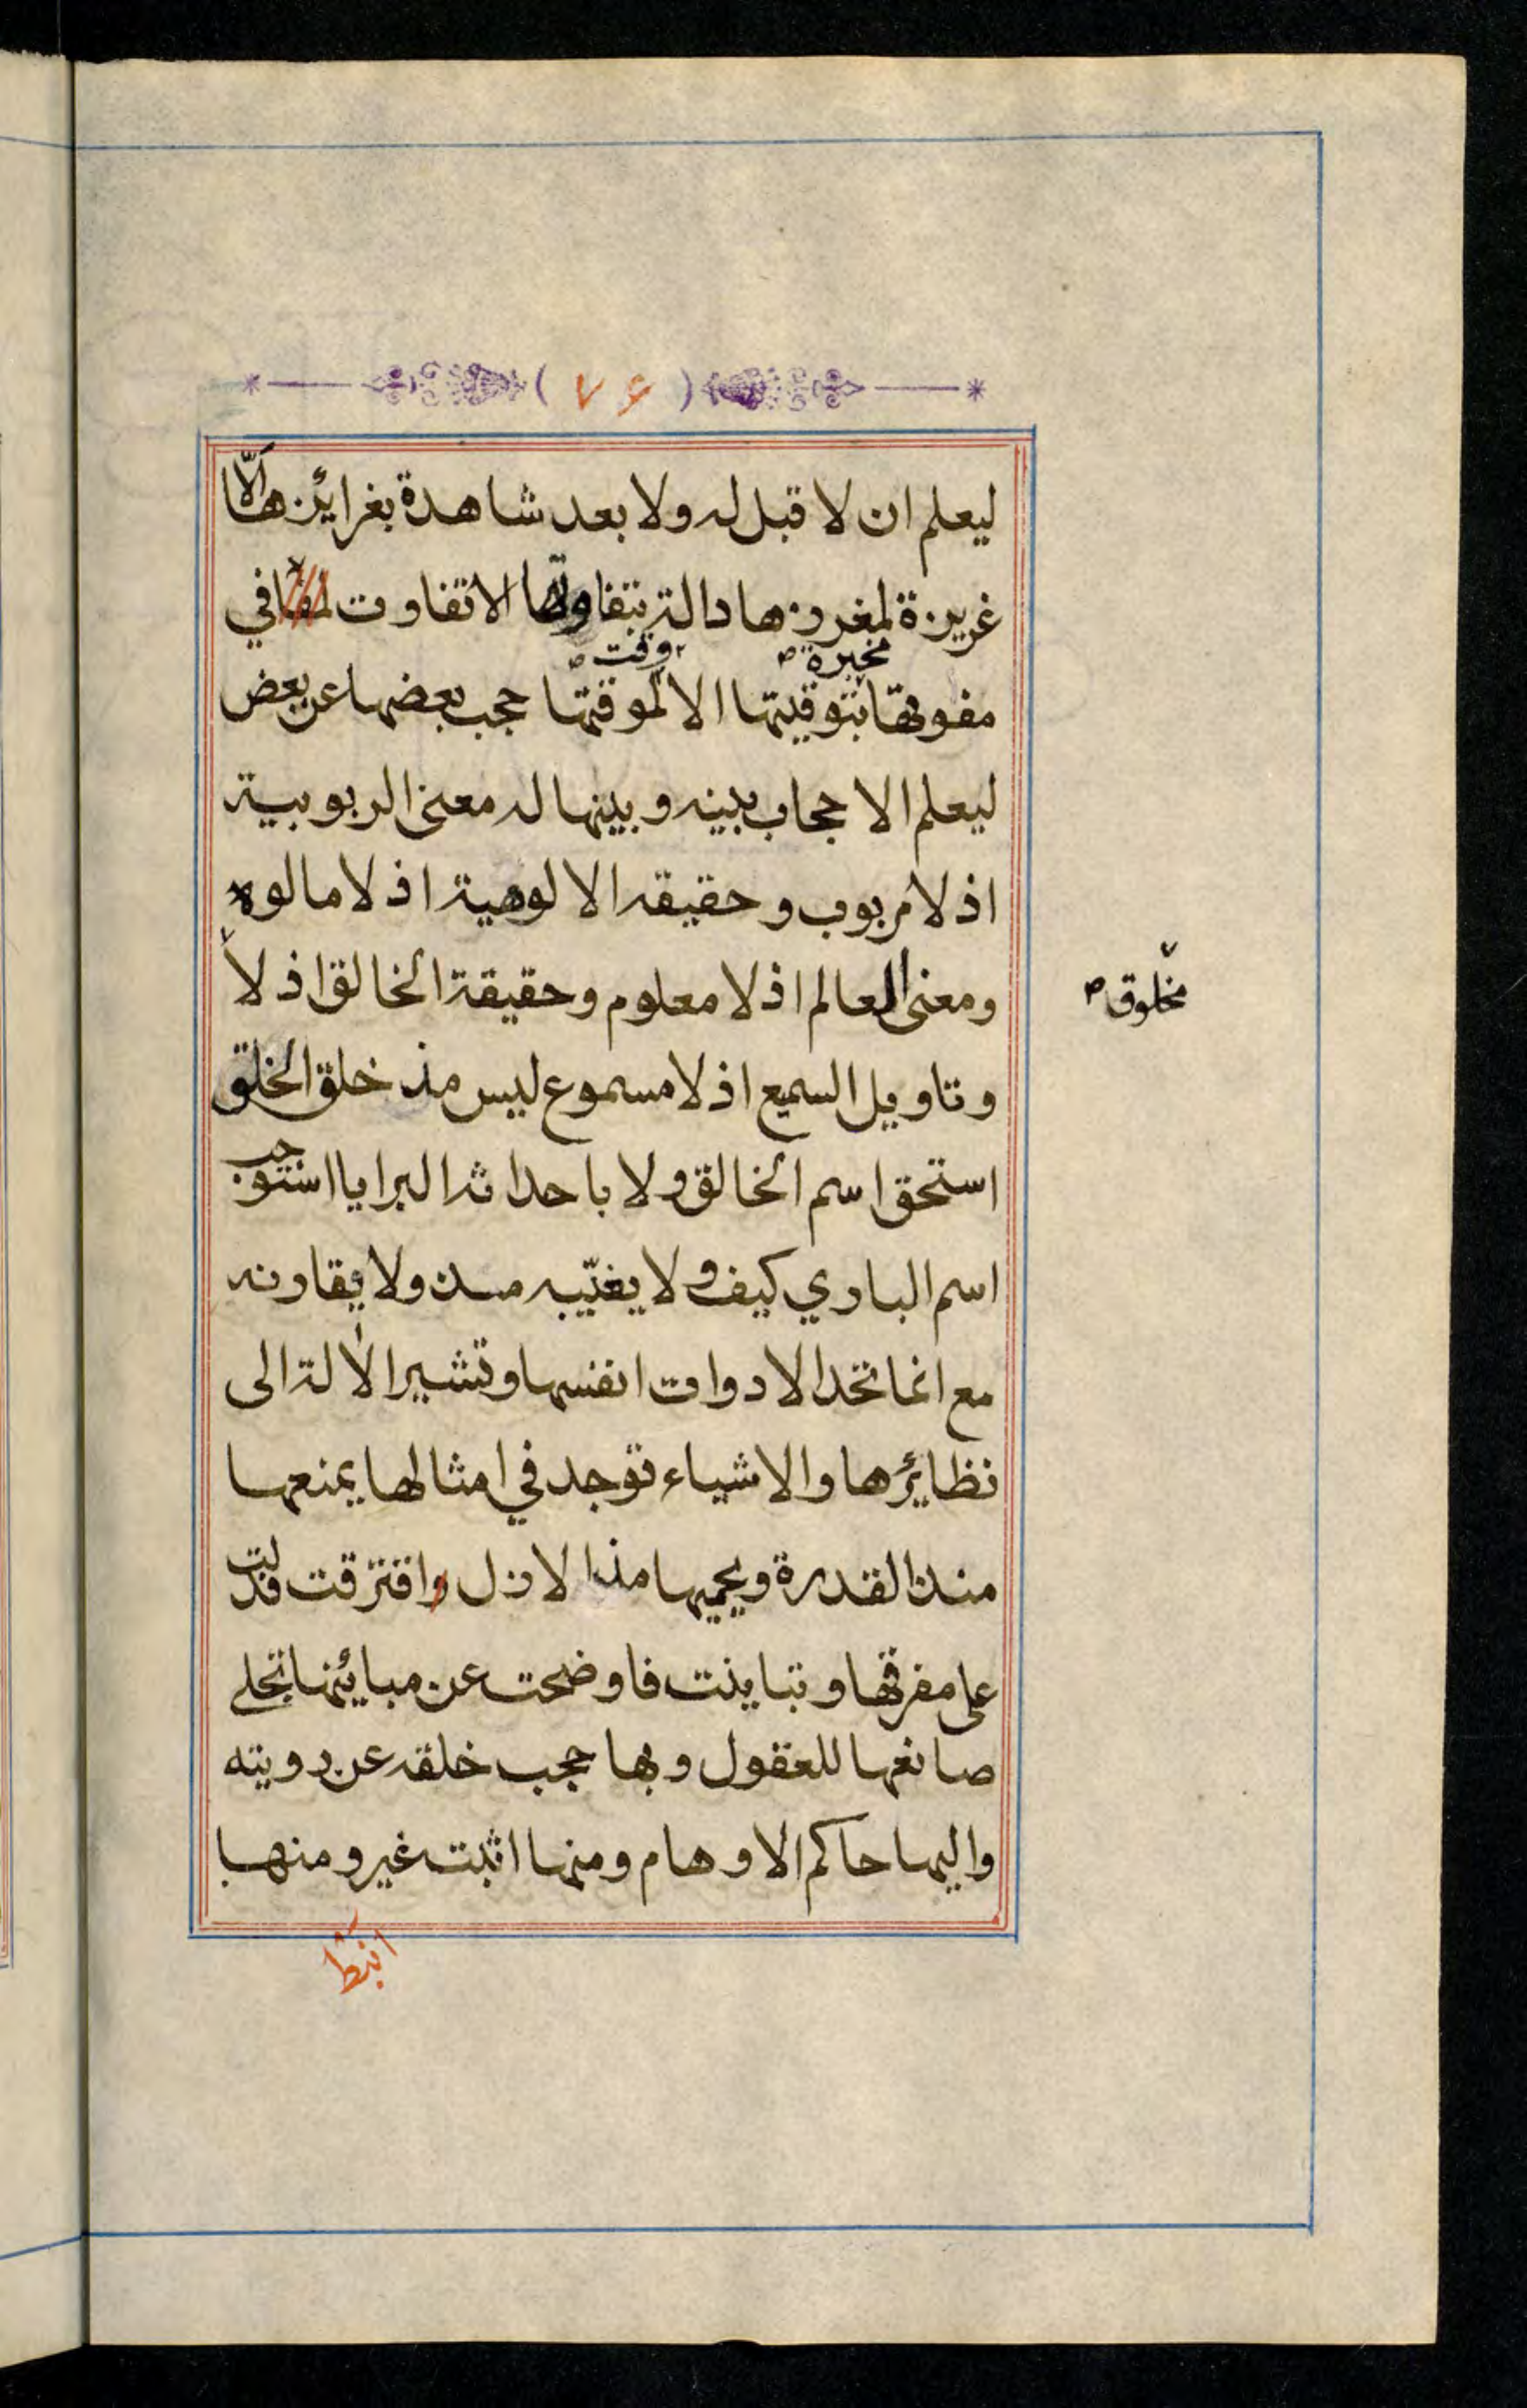 ٧۶
ليعلم ان لا قبل له ولا بعد شاهدة بغرائزها الّا
غريزة لمغرزها دالة بتفاوتها الا تفاوت لمفا في
مخبرة ص وقت ص
مفوتها بتوقيتها الا لموقتها حجب بعضها عن بعض
ليعلم الا حجاب بينه وبينها له معنى الربوبية
اذ لا مربوب وحقيقه الالوهية اذ لا مالوه
ومعنى العالم اذ لا معلوم وحقيقة الخالق اذ لا
مخلوق ص
وتاويل السميع اذ لا مسموع ليس مذ خلق الخلق
استحق اسم الخالق ولا باحداثه البرايا استوجب
اسم الباري كيف ولا يغيّبه مذ ولا يقارنه
مع انما تحد الادوات انفسها وتشير الالة الى
نظائرها والاشياء توجد في امثالها يمنعها
منذ القدرة ويحميها مذ الازل وافترقت فدلت
على مفرقها وتباينت فاوضحت عن مبائنها تجلى
صانعها للعقول وبها حجب خلقه عن رويته
واليها حاكم الاوهام ومنها اثبت غير ومنها